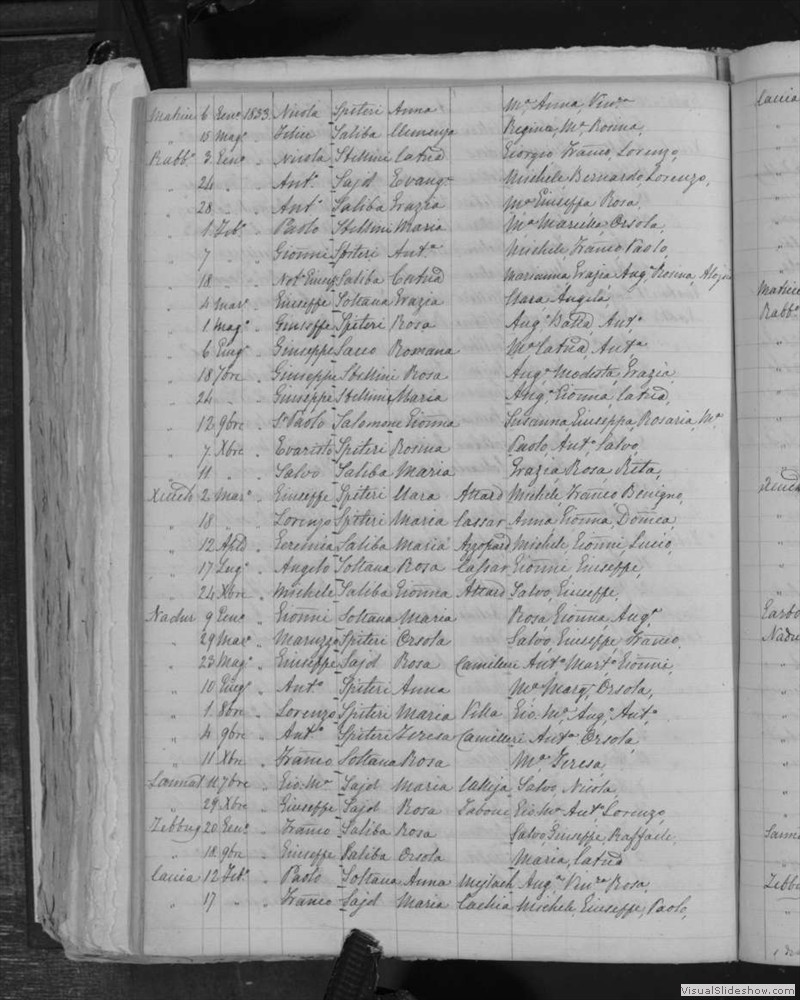 Matrice 6 Genº 1833. Nicola Spiteri Anna Mª Anna, Vincª
" 15 Magº " Felice Saliba Clemenza Regina, Mª Rosina,
Rabbº 3 Genº " Nicola Stellini Catnā Giorgio, Franco, Lorenzo,
" 24 " " Antº Sajd Evangª Michele Bernardo, Lorenzo,
" 28 " " Antº Saliba Grazia Mª Giuseppa Rosa,
" 1 Febº " Paolo Stellini Maria Mª Marietta, Orsola,
" 7 " Gionni Spiteri Antª Michele, Franco Paolo,
" 18 " Notº Saliba Catnā Marianna Grazia Angª Rosina,
" 4 Marº " Giuseppe Soltana Grazia Clara Angela,
" 1 Magº " Giuseppe Spiteri Rosa Angª Batta, Antª
" 6 Giugº " Giuseppe Sacco Romana Mª Catnā, Antª
" 18 7bre " Giuseppe Stellini Rosa Angª Modesta, Grazia,
" 24 " " Giuseppe Stellini Maria Angª Gionna, Catnā,
" 12 9bre " Sr Paolo Salomone Gionna Susanna, Giuseppa, Rosaria, Mª
" 7 Xbre " Evaristo Spiteri Rosina Paolo, Antº Salvo,
" 11 " " Salvo Saliba Maria Grazia, Rosa, Rita,
Xeuch 2 Marº " Giuseppe Spiteri Clara Attard Michele, Franco Benigno,
" 18 " " Lorenzo Spiteri Maria Cassar Anna Gionna, Domca
" 12 Aple " Geremia Saliba Maria Azzopard Michele Gionni, Lucio,
" 17 Lugº " Angelo Soltana Rosa Cassar Gionni Giuseppe,
" 24 Xbre " Michele Saliba Gionna Attard Salvo, Giuseppe,
Nadur 9 Genº " Gionni Soltana Maria Rosa Gionna, Angª
" 29 Marº " Maruzzo Spiteri Orsola Salvo, Giuseppe Franco,
" 23 Magº " Giuseppe Sajd Rosa Camilleri Antº Martº Gionni,
" 10 Giugº " Antº Spiteri Anna Mª Margª Orsola,
" 1 8bre " Lorenzo Spiteri Maria Vella Gio. Mª Angº Antº
" 4 9bre " Antº Spiteri Teresa Camilleri Antª Orsola,
" 11 Xbre " Franco Soltana Rosa Mª Teresa
Sannat 11 7bre " Gio. Mª Sajd Maria Salvo, Nicola,
" 29 Xbre " Giuseppe Sajd Rosa Tabone Gio. Mª Antº Lorenzo,
Zebbug 20 Genº " Franco Saliba Rosa Salvo, Giuseppe, Raffaele,
" 18 9bre " Giuseppe Saliba Orsola Maria, Catnā
Caccia 12 Febº " Paolo Soltana Anna Mejlach Angª Vincª Rosa,
" 17 " " Franco Sajd Maria Cachia Michele, Giuseppe, Paolo,
Caccia
Matrice
Rabbº
Xeuch
Garbo
Nadur
Sannat
Zebbug
VisualSlideshow.com